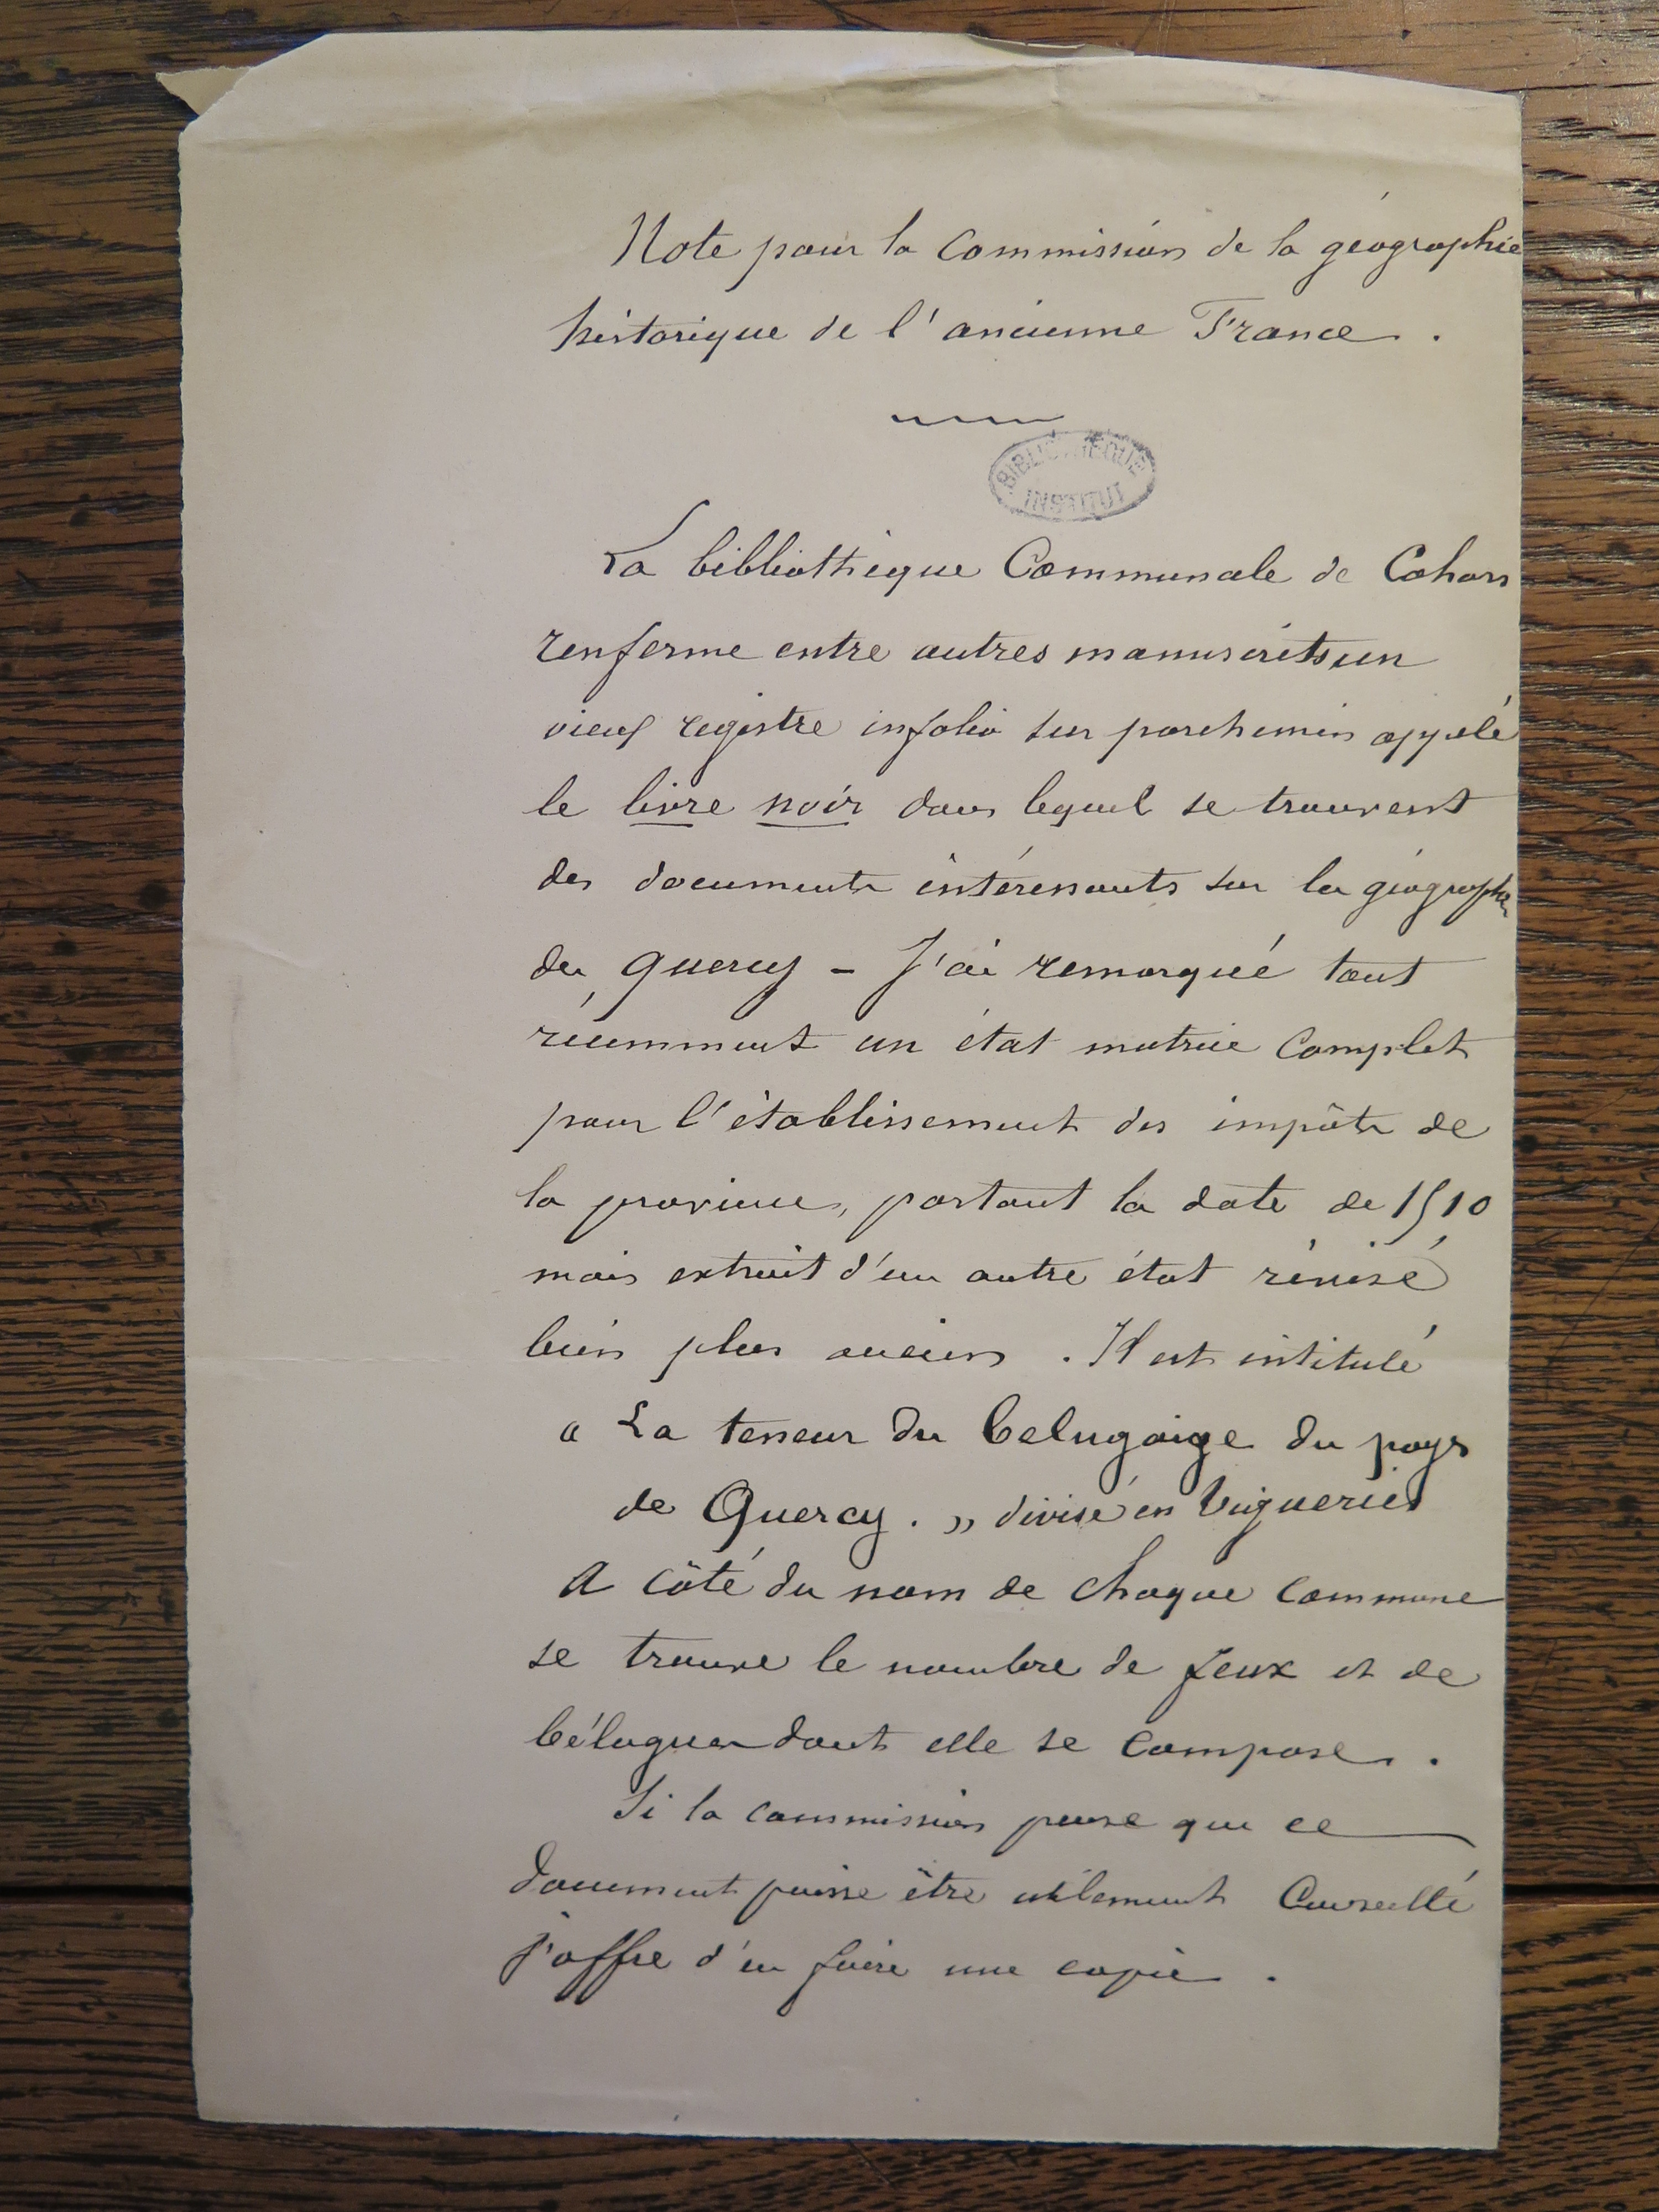 Note pour la Commission de la géographie
historique de l'ancienne France.
BIBLIOTHÈQUE
INSTITUT
La bibliothèque Communale de Cahors
renferme entre autres manuscrits un
vieux registre infolio sur parchemin appelé
le livre noir dans lequel se trouvent
des documents intéressants sur la géographie
du Quercy - J'ai remarqué tout
récemment un état matrice complet
pour l'établissement des impôts de
la province, portant la date de 1510
mais extrait d'un autre état révisé
bien plus ancien. Il est intitulé
« La teneur du belugaige du pays
de Quercy. » divisé en Vigueries
A côté du nom de chaque commune
se trouve le nombre de feux et de
bélugues dont elle se compose.
Si la commission pense que ce
document puisse être utilement Consulté
j'offre d'en faire une copie.